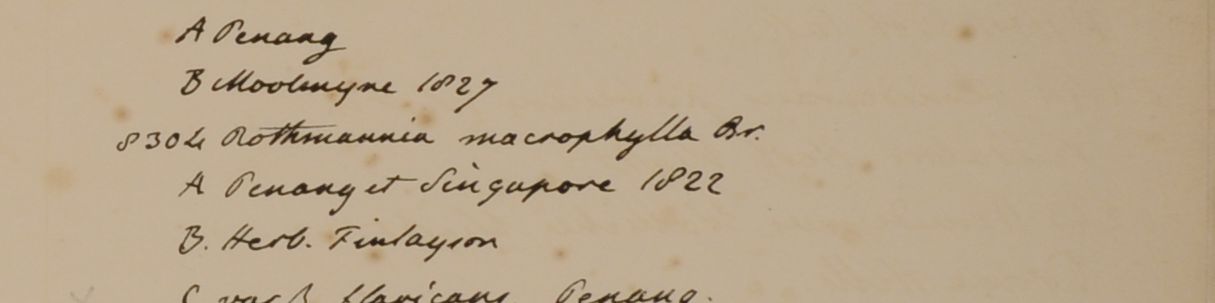 A Penang
B Moolmyne 1827
8304 Rothmannia macrophylla Br.
A Penang et Singapore 1822
B. Herb. Finlayson
C var β flavicans Penang.